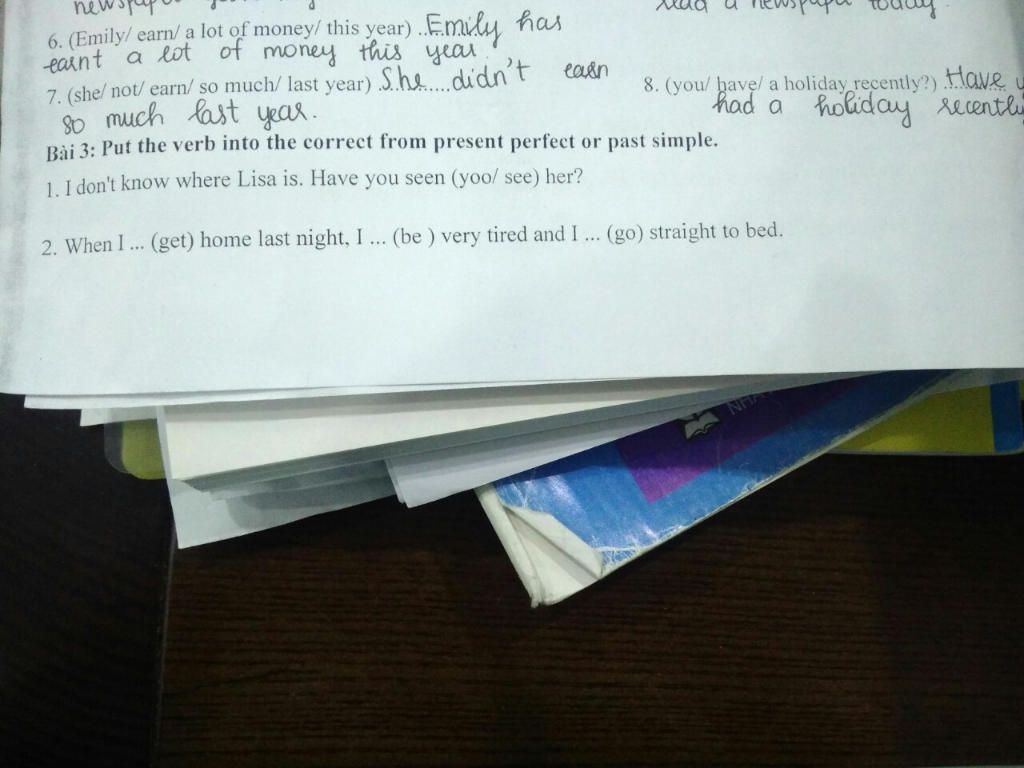 newspaper
read a newspaper today.
6. (Emily/ earn/ a lot of money/ this year) ..Emily has
earnt a lot of money this year.
7. (she/ not/ earn/ so much/ last year) .She.....didn't earn
so much last year.
8. (you/ have/ a holiday recently?) .Have
had a holiday recently
Bài 3: Put the verb into the correct from present perfect or past simple.
1. I don't know where Lisa is. Have you seen (yoo/ see) her?
2. When I ... (get) home last night, I ... (be ) very tired and I ... (go) straight to bed.